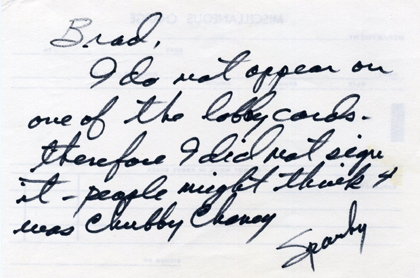 MISCELLANEOUS CHARGE
Brad,
I do not appear on
one of the lobby cards-
therefore I did not sign
it - people might think I
was Chubby Chaney
Spanky